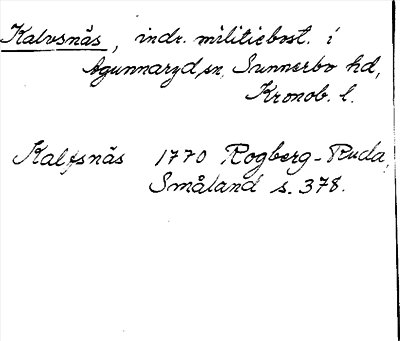 Kalvsnäs, indr. militiebost. i
Agunnaryd sn, Sunnerbo hd,
Kronob. l.
Kalfsnäs 1770 Rogberg-Ruda,
Småland s. 378.